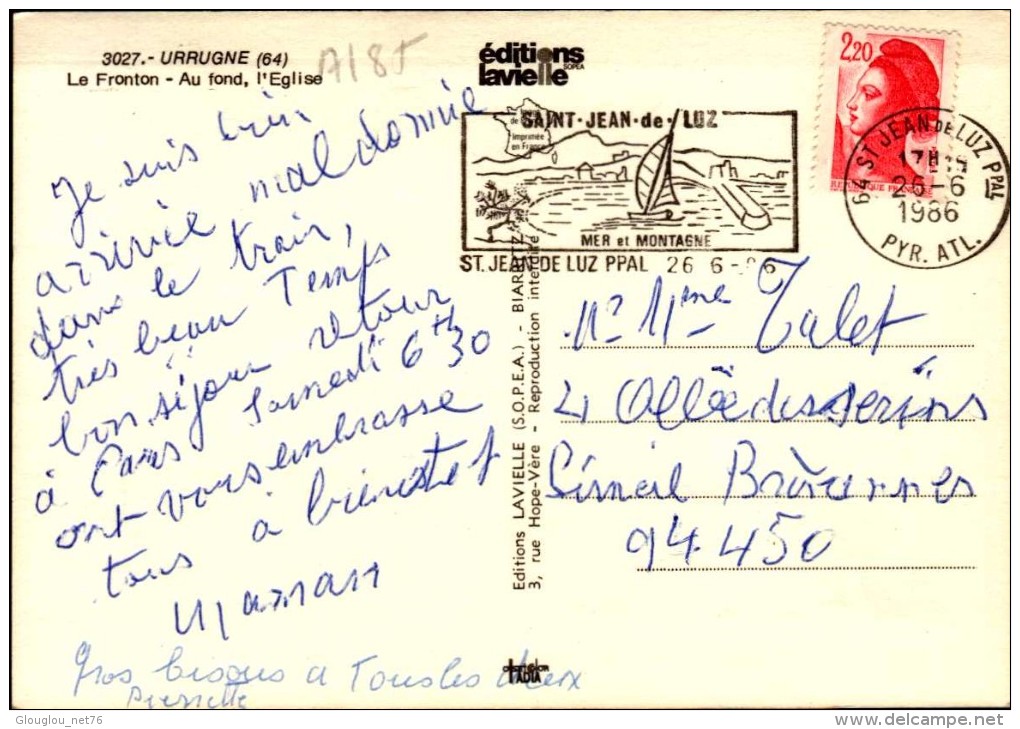 3027.- URRUGNE (64)
Le Fronton - Au fond, l'Eglise
A185
éditions
lavielle
SOPEA
Imprimée
en France
SAINT·JEAN·de·LUZ
MER et MONTAGNE
ST.JEAN DE LUZ PPAL 26 6-86
2,20
REPUBLIQUE FRANC
64 ST JEAN DE LUZ PPAL
17H
26-6
1986
PYR. ATL.
Je suis bien
arrivée mal dormie
dans le train,
très beau Temps
bon séjour retour
à Paris Samedi 6h30
ont vous embrasse
tous à bientôt
Maman
Gros bisous a Tous les deux
Pierrette
Editions LAVIELLE (S.O.P.E.A.) - BIARRITZ
3, rue Hope-Vère - Reproduction interdite
Mr Mme Talet
4 Allée des serins
Limeil Brévannes
94450
Glouglou_net76
www.delcampe.net